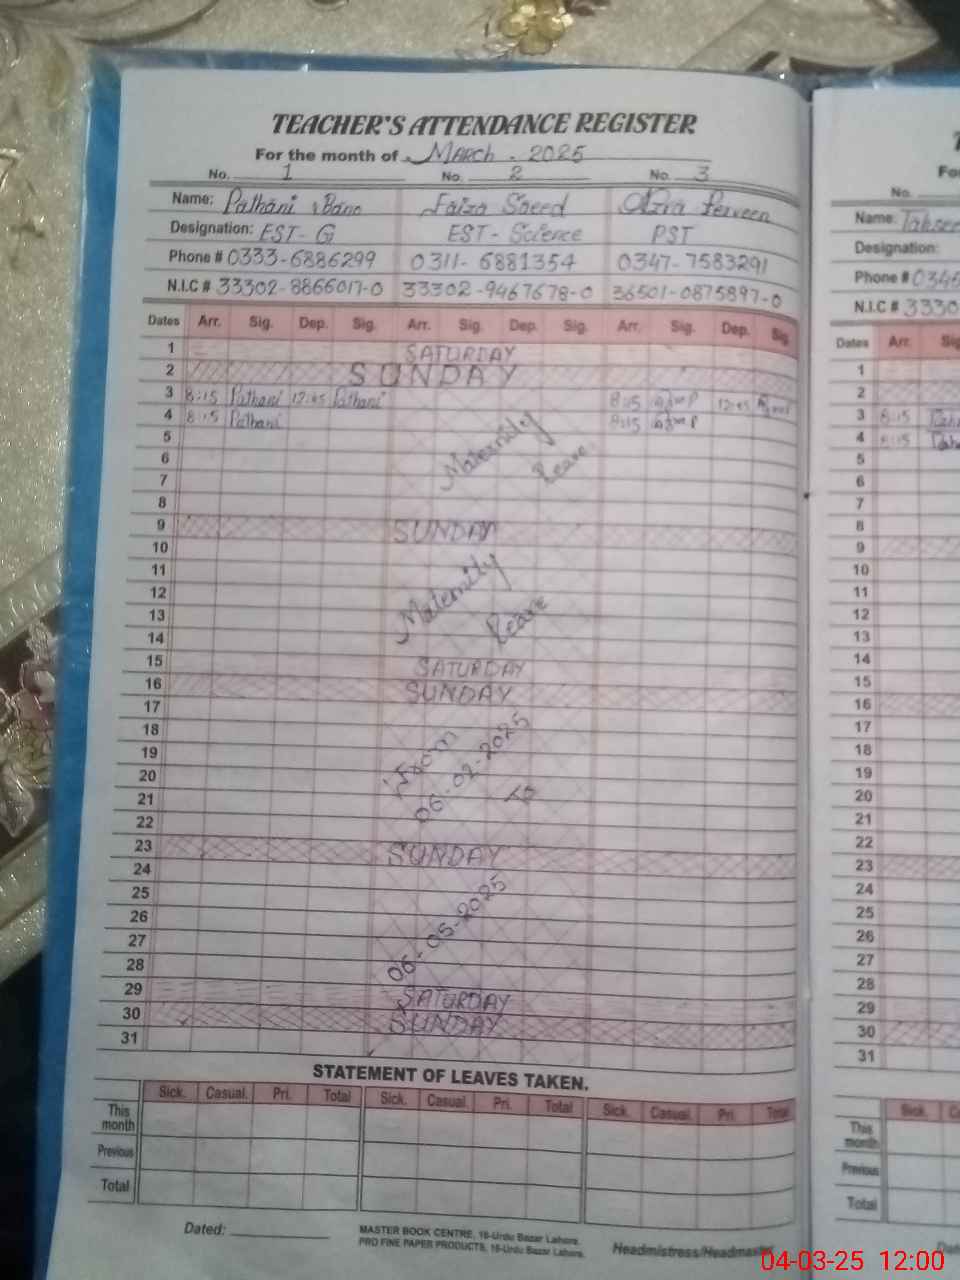 TEACHER'S ATTENDANCE REGISTER
For the month of March - 2025
No. 1 No. 2 No. 3 No.
Name: Pathani Bano Faiza Saeed Azra Perveen Name:
Designation: EST- G EST- Science PST Designation:
Phone # 0333-6886299 0311-6881354 0347-7583291 Phone # 0345
N.I.C # 33302-8866017-0 33302-9467678-0 36501-0875897-0 N.I.C # 3330
Dates Arr. Sig. Dep. Sig. Arr. Sig. Dep. Sig. Arr. Sig. Dep. Sig. Dates Arr. Sig
1 SATURDAY 1
2 SUNDAY 2
3 8:15 Pathani 12:45 Pathani 8:15 12:45 3 8:15
4 8:15 Pathani 8:15 4 8:15
5 Maternity 5
6 Leave 6
7 7
8 8
9 SUNDAY 9
10 10
11 Maternity 11
12 12
13 Leave 13
14 14
15 SATURDAY 15
16 SUNDAY 16
17 17
18 From 18
19 06-02-2025 19
20 20
21 To 21
22 22
23 SUNDAY 23
24 24
25 06-05-2025 25
26 26
27 27
28 28
29 SATURDAY 29
30 SUNDAY 30
31 31
STATEMENT OF LEAVES TAKEN.
Sick. Casual. Pri. Total Sick. Casual. Pri. Total Sick. Casual. Pri. Total Sick. C
This month This month
Previous Previous
Total Total
Dated:
MASTER BOOK CENTRE, 16-Urdu Bazar Lahore.
PRO FINE PAPER PRODUCTS, 16-Urdu Bazar Lahore.
Headmistress/Headmaster
04-03-25 12:00